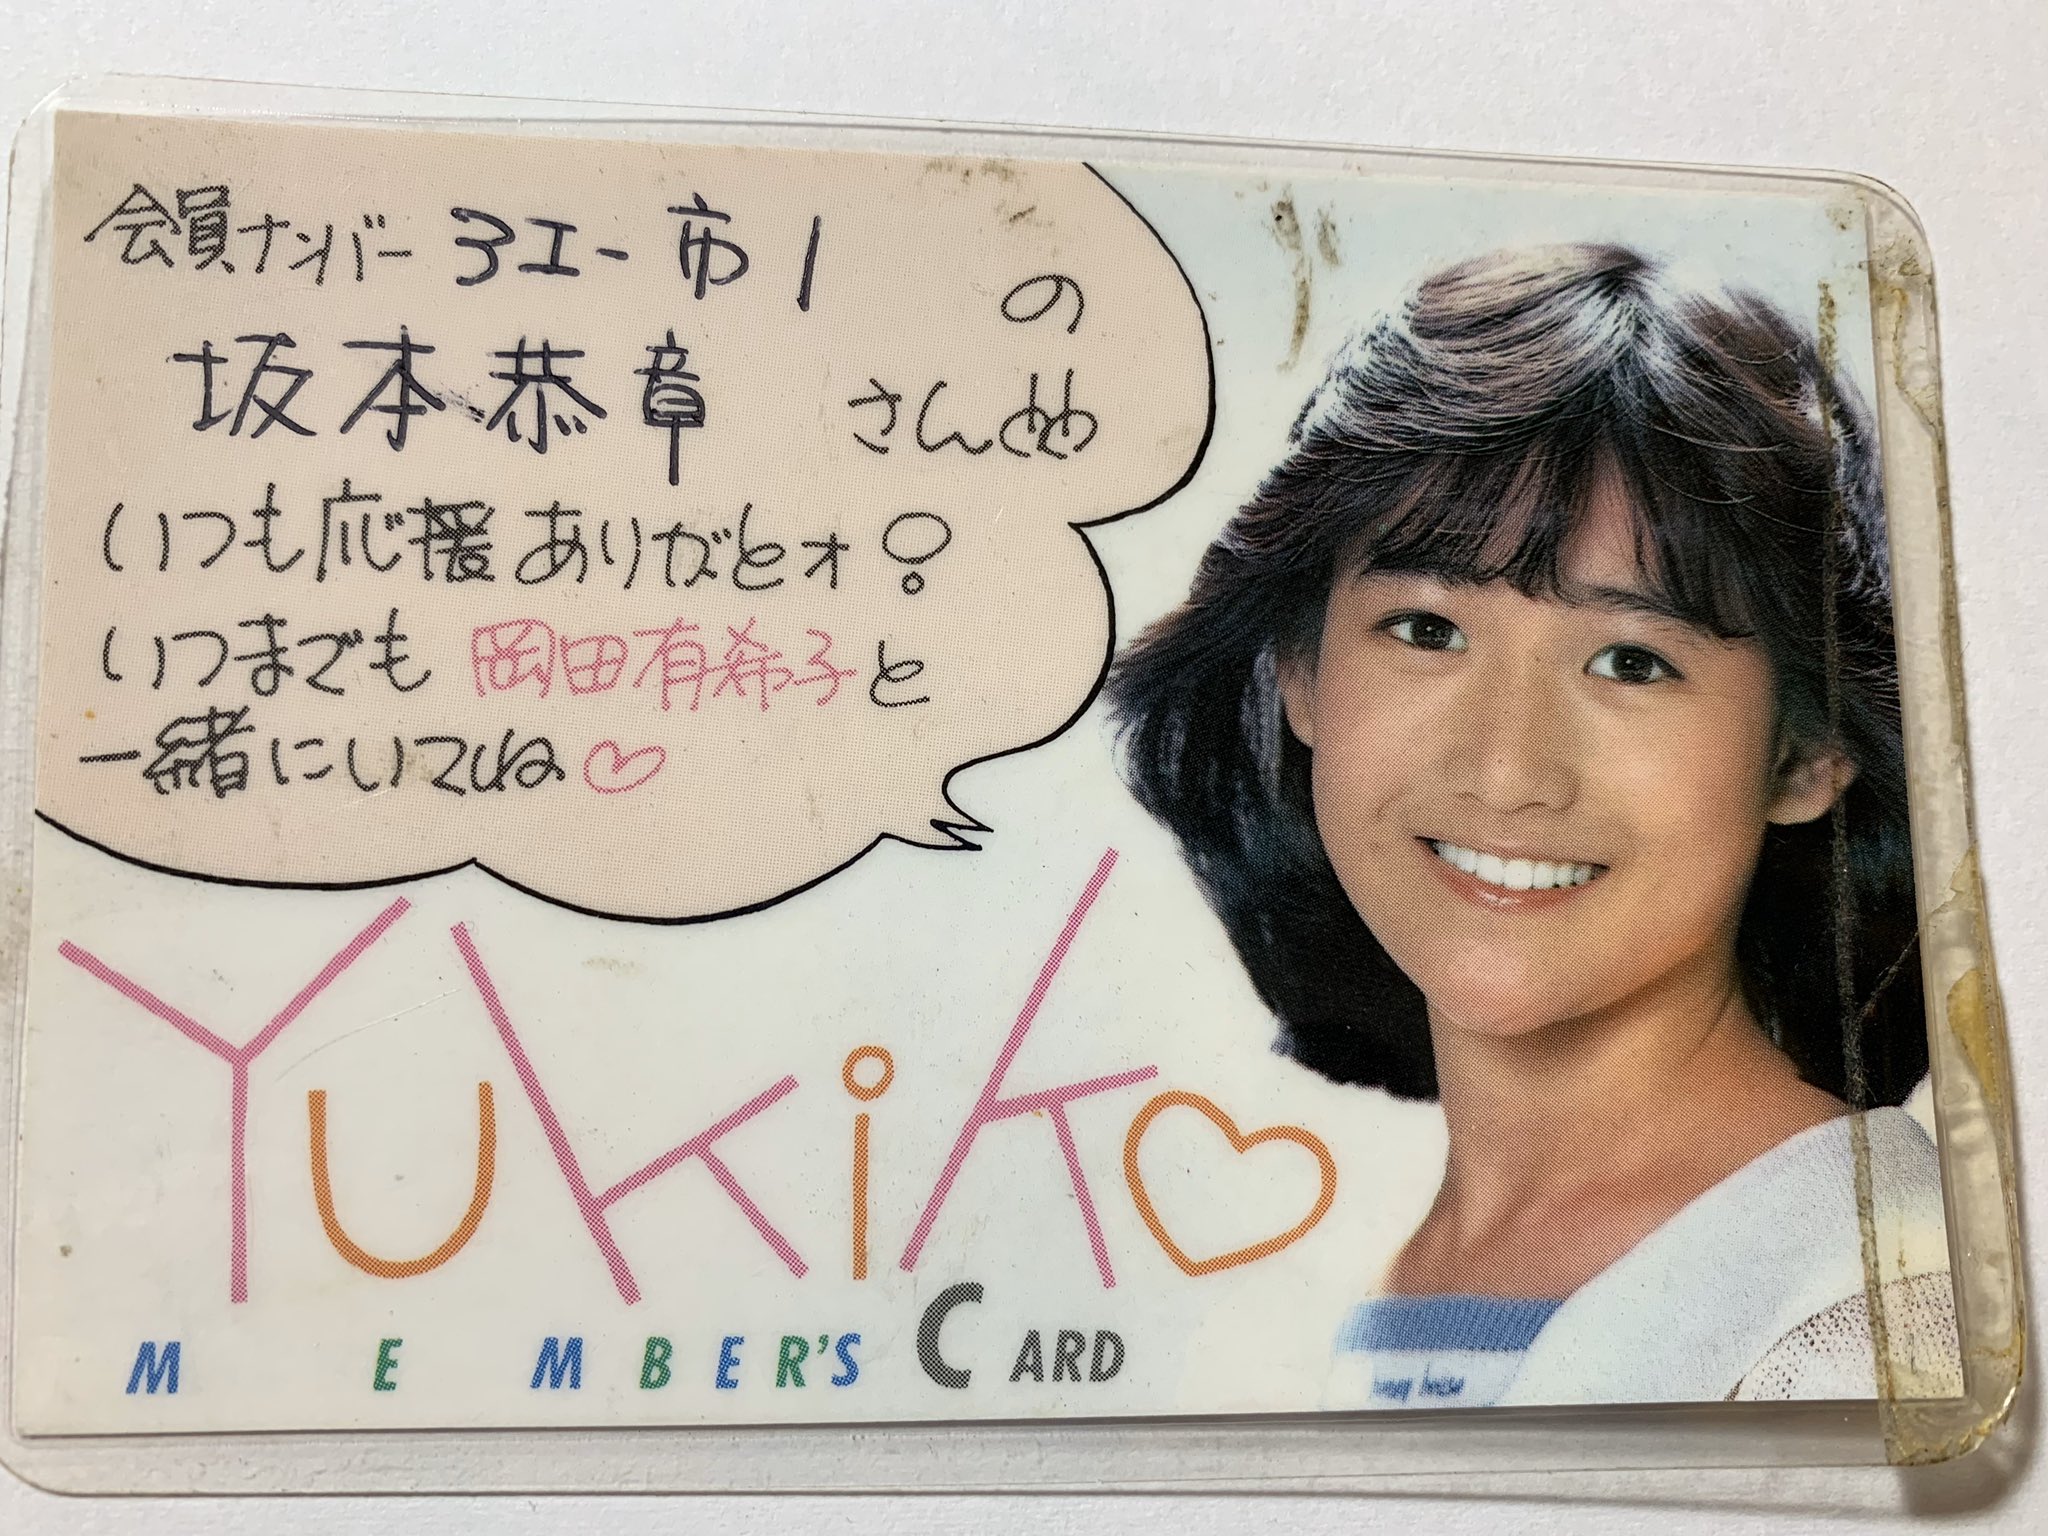 会員ナンバー 3エー市1 の
坂本恭章 さん
いつも応援ありがとォ!
いつまでも岡田有希子と
一緒にいてね♡
Yukiko
MEMBER'S CARD